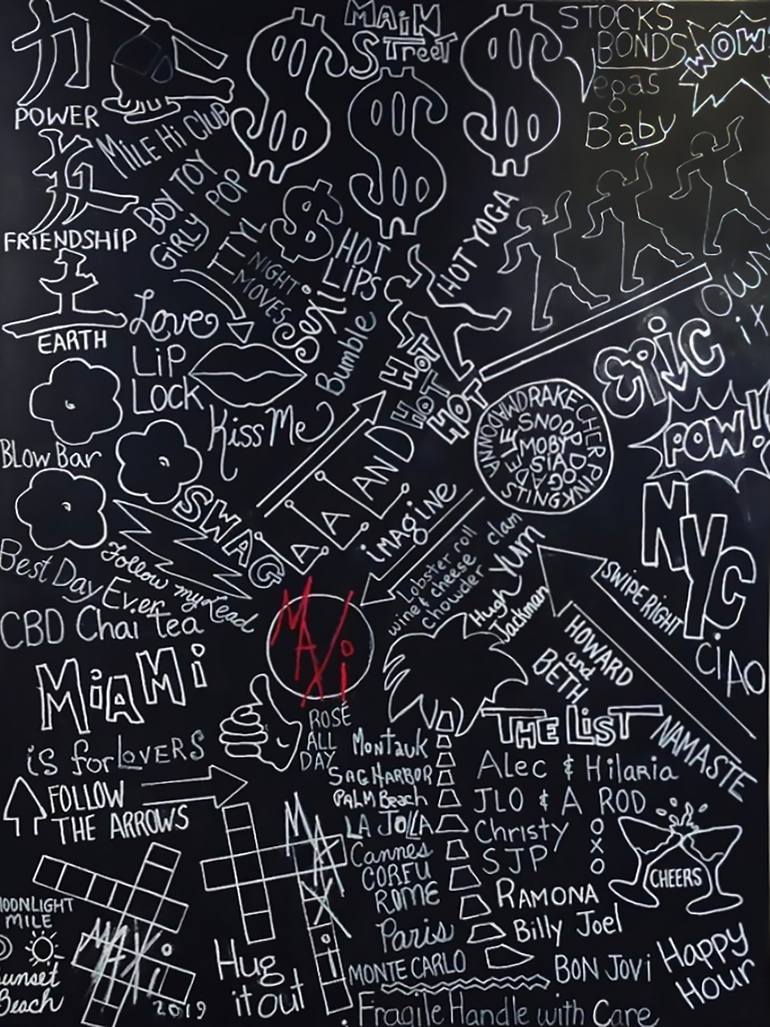 力
POWER
MAIN
STREET
$ $ $
STOCKS
BONDS
WOW!
Vegas
Baby
MILE HI CLUB
FRIENDSHIP
BOY TOY
GIRLY POP
TTYL
NIGHT
MOVES
$
HOT
LIPS
HOT YOGA
土
EARTH
Love
Sexi
Bumble
OWN
LIP
LOCK
Kiss Me
HOT
HOT
HOT
EPIC
POW!!
DRAKE CHER PINK
SNOOP DOG
MOBY
SIA
MADONNA
ADELE
BLOW BAR
SWAG
LA LA LAND
imagine
NYC
Best Day
Ever
Follow my Lead
CBD Chai tea
Lobster roll
wine & cheese
clam
chowder
Yum
Hugh
Jackman
SWIPE RIGHT
CIAO
MAXi
HOWARD
and
BETH
NAMASTE
MiAMi
is for LOVERS
ROSÉ
ALL
DAY
THE LiST
FOLLOW
THE ARROWS
Montauk
SAG HARBOR
PALM Beach
LA JOLLA
Cannes
CORFU
ROME
Paris
MONTE CARLO
Alec & Hilaria
JLO & A ROD
Christy
SJP
OXO
RAMONA
Billy Joel
BON JOVI
CHEERS
MAXi
MOONLIGHT
MILE
Sunset
Beach
MAXi
2019
Hug
it out
Happy
Hour
Fragile Handle with Care